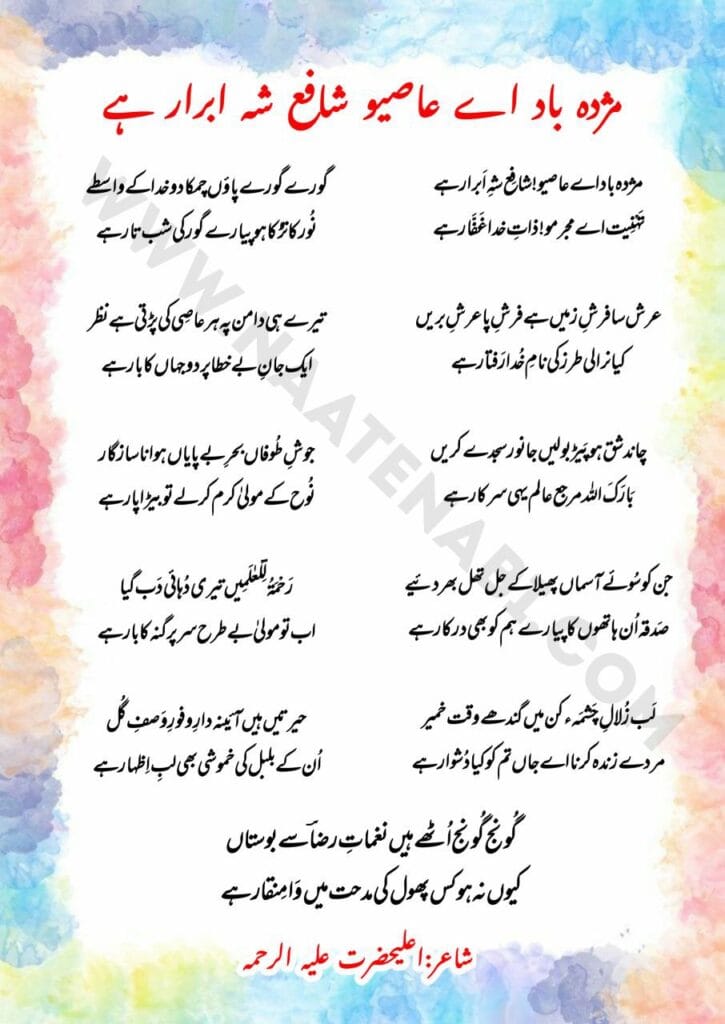 مژدہ باد اے عاصیو شافع شہ ابرار ہے
مژدہ باد اے عاصیو! شافِع شہِ اَبرار ہے
تَہْنِیَت اے مجرمو! ذاتِ خدا غَفَّار ہے
عرش سا فرشِ زمیں ہے فرشِ پا عرشِ بریں
کیا نرالی طرز کی نامِ خُدا رَفتار ہے
چاند شق ہو پیڑ بولیں جانور سجدے کریں
بَارَکَ اللہ مرجعِ عالم یہی سرکار ہے
جن کو سُوئے آسماں پھیلا کے جل تھل بھر دئیے
صَدقہ اُن ہاتھوں کا پیارے ہم کو بھی درکار ہے
لَب زُلالِ چَشمہء کن میں گندھے وقت خمیر
مردے زندہ کرنا اے جاں تم کو کیا دُشوار ہے
گورے گورے پاؤں چمکا دو خدا کے واسطے
نُور کا تڑکا ہو پیارے گور کی شب تار ہے
تیرے ہی دامن پہ ہر عاصِی کی پڑتی ہے نظر
ایک جانِ بے خطا پر دو جہاں کا بار ہے
جوشِ طُوفاں بحرِ بے پایاں ہوا ناسازگار
نُوح کے مولیٰ کرم کر لے تو بیڑا پار ہے
رَحْمَۃٌ لِّلْعٰلَمِیں تیری دُہائی دَب گیا
اب تو مولیٰ بے طرح سر پر گنہ کا بار ہے
حیرتیں ہیں آئینہ دارِ وفورِ وَصفِ گُل
اُن کے بلبل کی خموشی بھی لبِ اِظہار ہے
گُونج گُونج اُٹھے ہیں نغماتِ رضاؔ سے بوستاں
کیوں نہ ہو کس پھول کی مدحت میں وَا مِنقار ہے
شاعر:اعلیحضرت علیہ الرحمہ
WWW.NAATENABI.COM